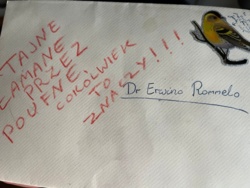 TAJNE
ŁAMANE
PRZEZ
POUFNE
COKOLWIEK
TO
ZNACZY!!!
Dr Erwino Rommelo